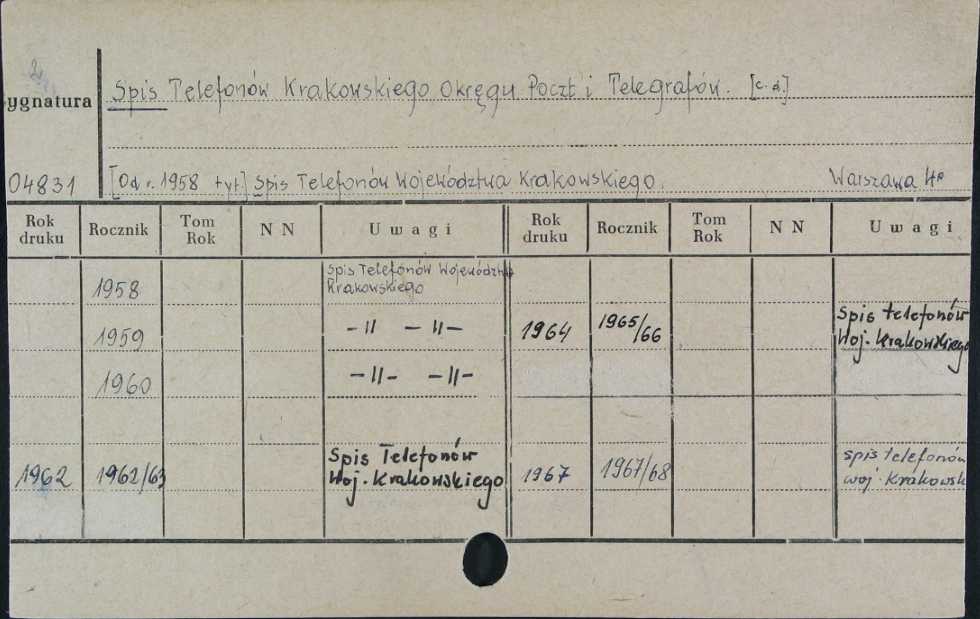 2
ygnatura
Spis Telefonów Krakowskiego Okręgu Poczt i Telegrafów. [c.d.]
04831
[Od r. 1958 tyt] Spis Telefonów Województwa Krakowskiego. Warszawa 4°
Rok druku Rocznik Tom Rok N N Uwagi Rok druku Rocznik Tom Rok N N Uwagi
1958 Spis Telefonów Województwa
Krakowskiego
1959 -"- -"- 1964 1965/66 Spis telefonów
Woj. Krakowskiego
1960 -"- -"-
1962 1962/63 Spis Telefonów
Woj. Krakowskiego
1967 1967/68 spis telefonów
woj. Krakowsk